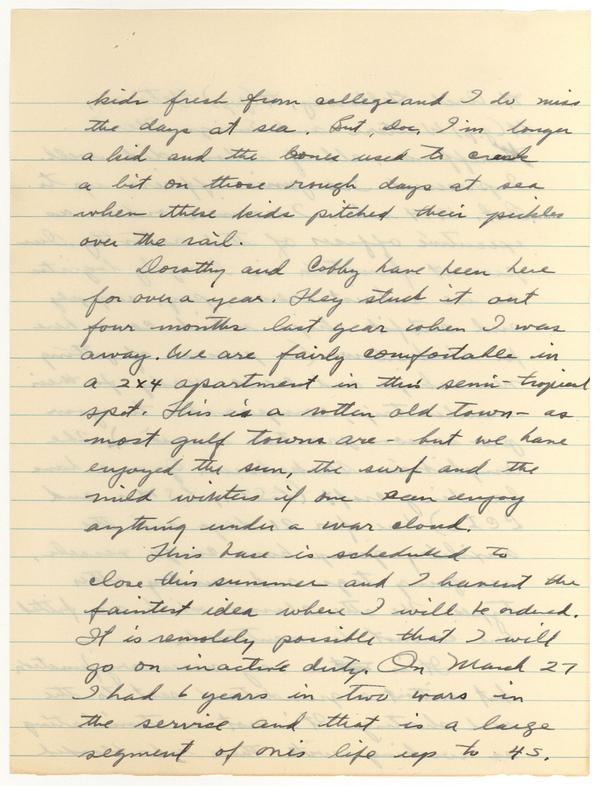 kids fresh from college and I do miss
the days at sea. But, Doc, I'm longer
a kid and the bones used to creak
a bit on those rough days at sea
when these kids pitched their pickles
over the rail.
Dorothy and Cobby have been here
for over a year. They stuck it out
four months last year when I was
away. We are fairly comfortable in
a 2x4 apartment in this semi-tropical
spot. This is a rotten old town - as
most gulf towns are - but we have
enjoyed the sun, the surf and the
mild winters if one can enjoy
anything under a war cloud.
This base is scheduled to
close this summer and I havent the
faintest idea where I will be ordered.
It is remotely possible that I will
go on inactive duty. On March 27
I had 6 years in two wars in
the service and that is a large
segment of onis life up to 45.